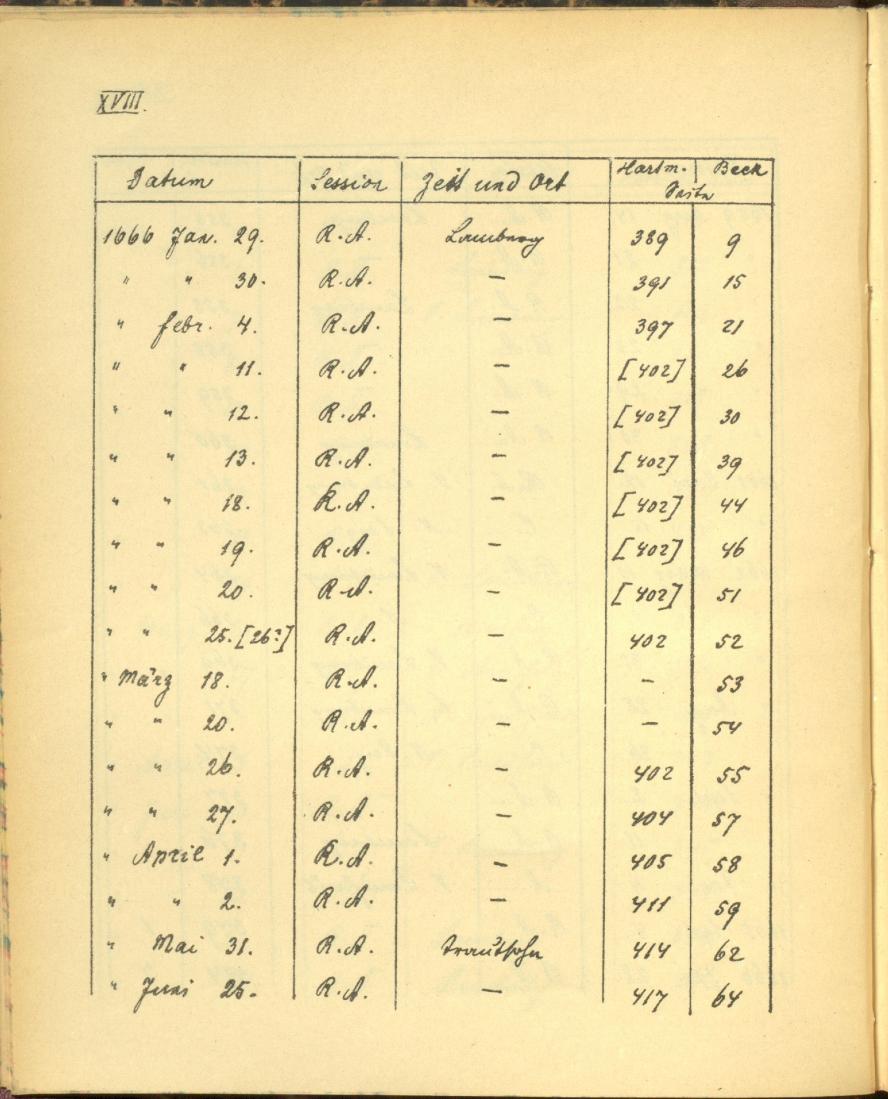 XVIII.
Datum Session Zeit und Ort Hartm. Beck
Seite
1666 Jan. 29. R.A. Lamberg 389 9
" " 30. R.A. — 391 15
" Febr. 4. R.A. — 397 21
" " 11. R.A. — [402] 26
" " 12. R.A. — [402] 30
" " 13. R.A. — [402] 39
" " 18. K.A. — [402] 44
" " 19. R.A. — [402] 46
" " 20. R.A. — [402] 51
" " 25. [26?] R.A. — 402 52
" März 18. R.A. — — 53
" " 20. R.A. — — 54
" " 26. R.A. — 402 55
" " 27. R.A. — 404 57
" April 1. K.A. — 405 58
" " 2. R.A. — 411 59
" Mai 31. R.A. Trautsohn 414 62
" Juni 25. R.A. — 417 64